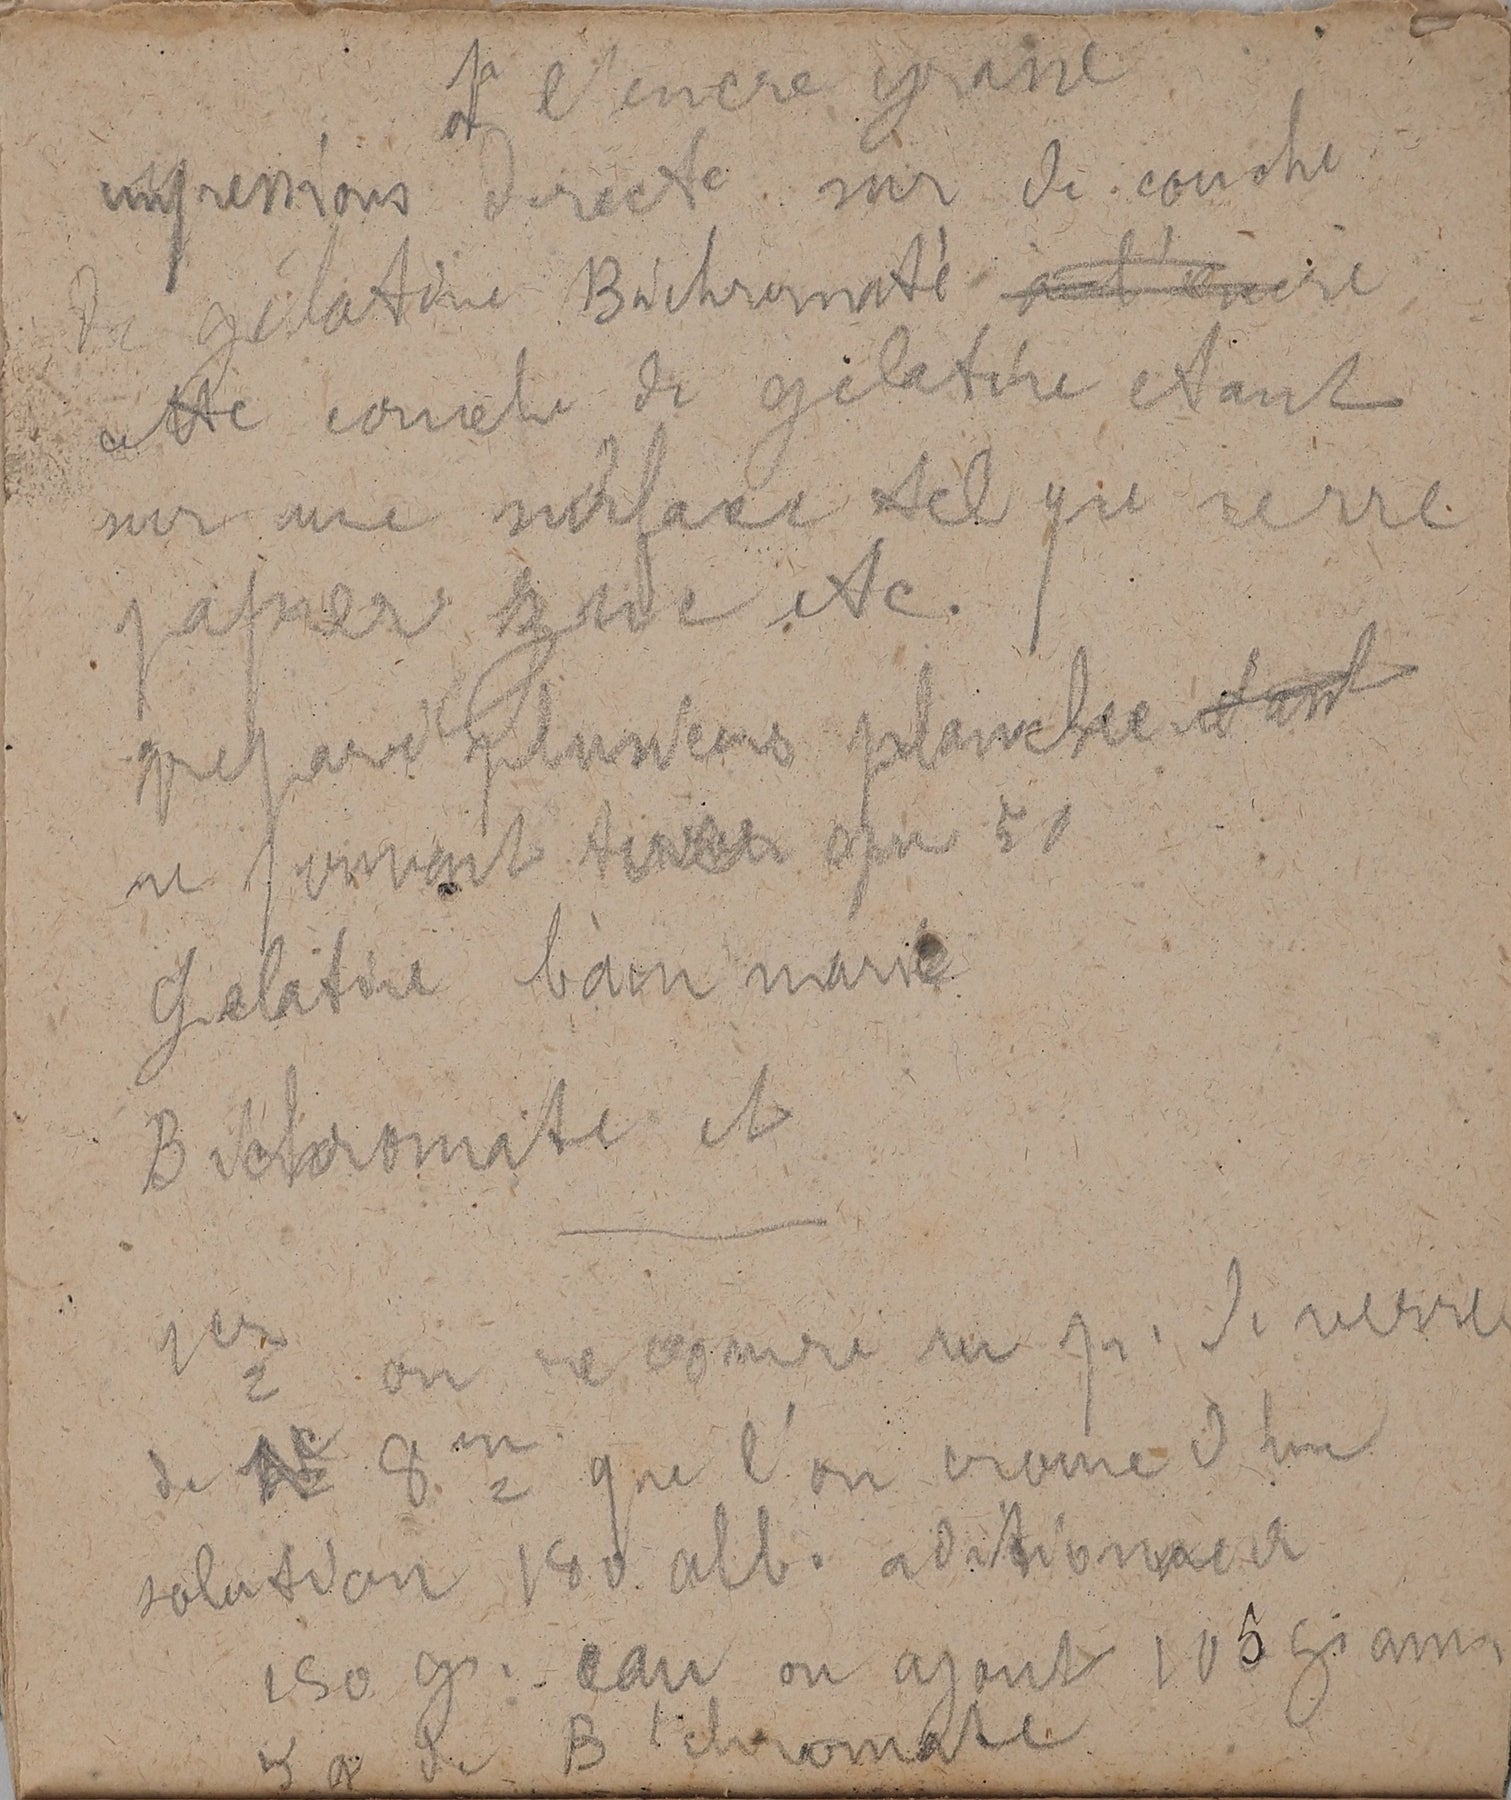 l'encre grasse
impressions directe sur de couche
de gélatine Bichromaté a l'encre
cette couche de gélatine etant
sur une surface tel que verre
papier zinc etc.
preparé plusieurs planche etant
ne pouvant tirer que 50
Gelatine bain marie
Bichromate et
on recouvre un p. de verre
de 8 m/2 que l'on couvre d'une
solution 180 alb. aditionner
150 gr. eau on ajout 105 grams
5 g de Bichromate